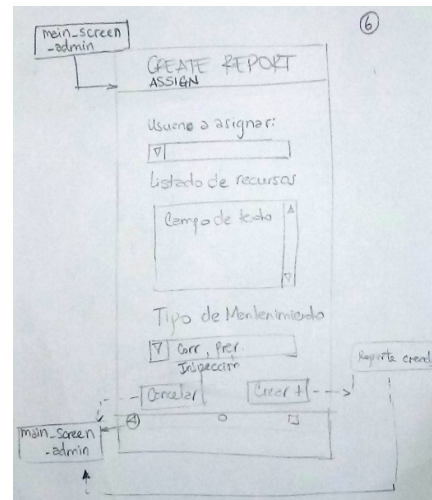 6
main_screen
-admin
CREATE REPORT
ASSIGN
Usuario a asignar:
Listado de recursos
Campo de texto
Tipo de Mantenimiento
Corr, Prev.
Inspección
Reporte creado
Cancelar
Crear +
main_screen
-admin